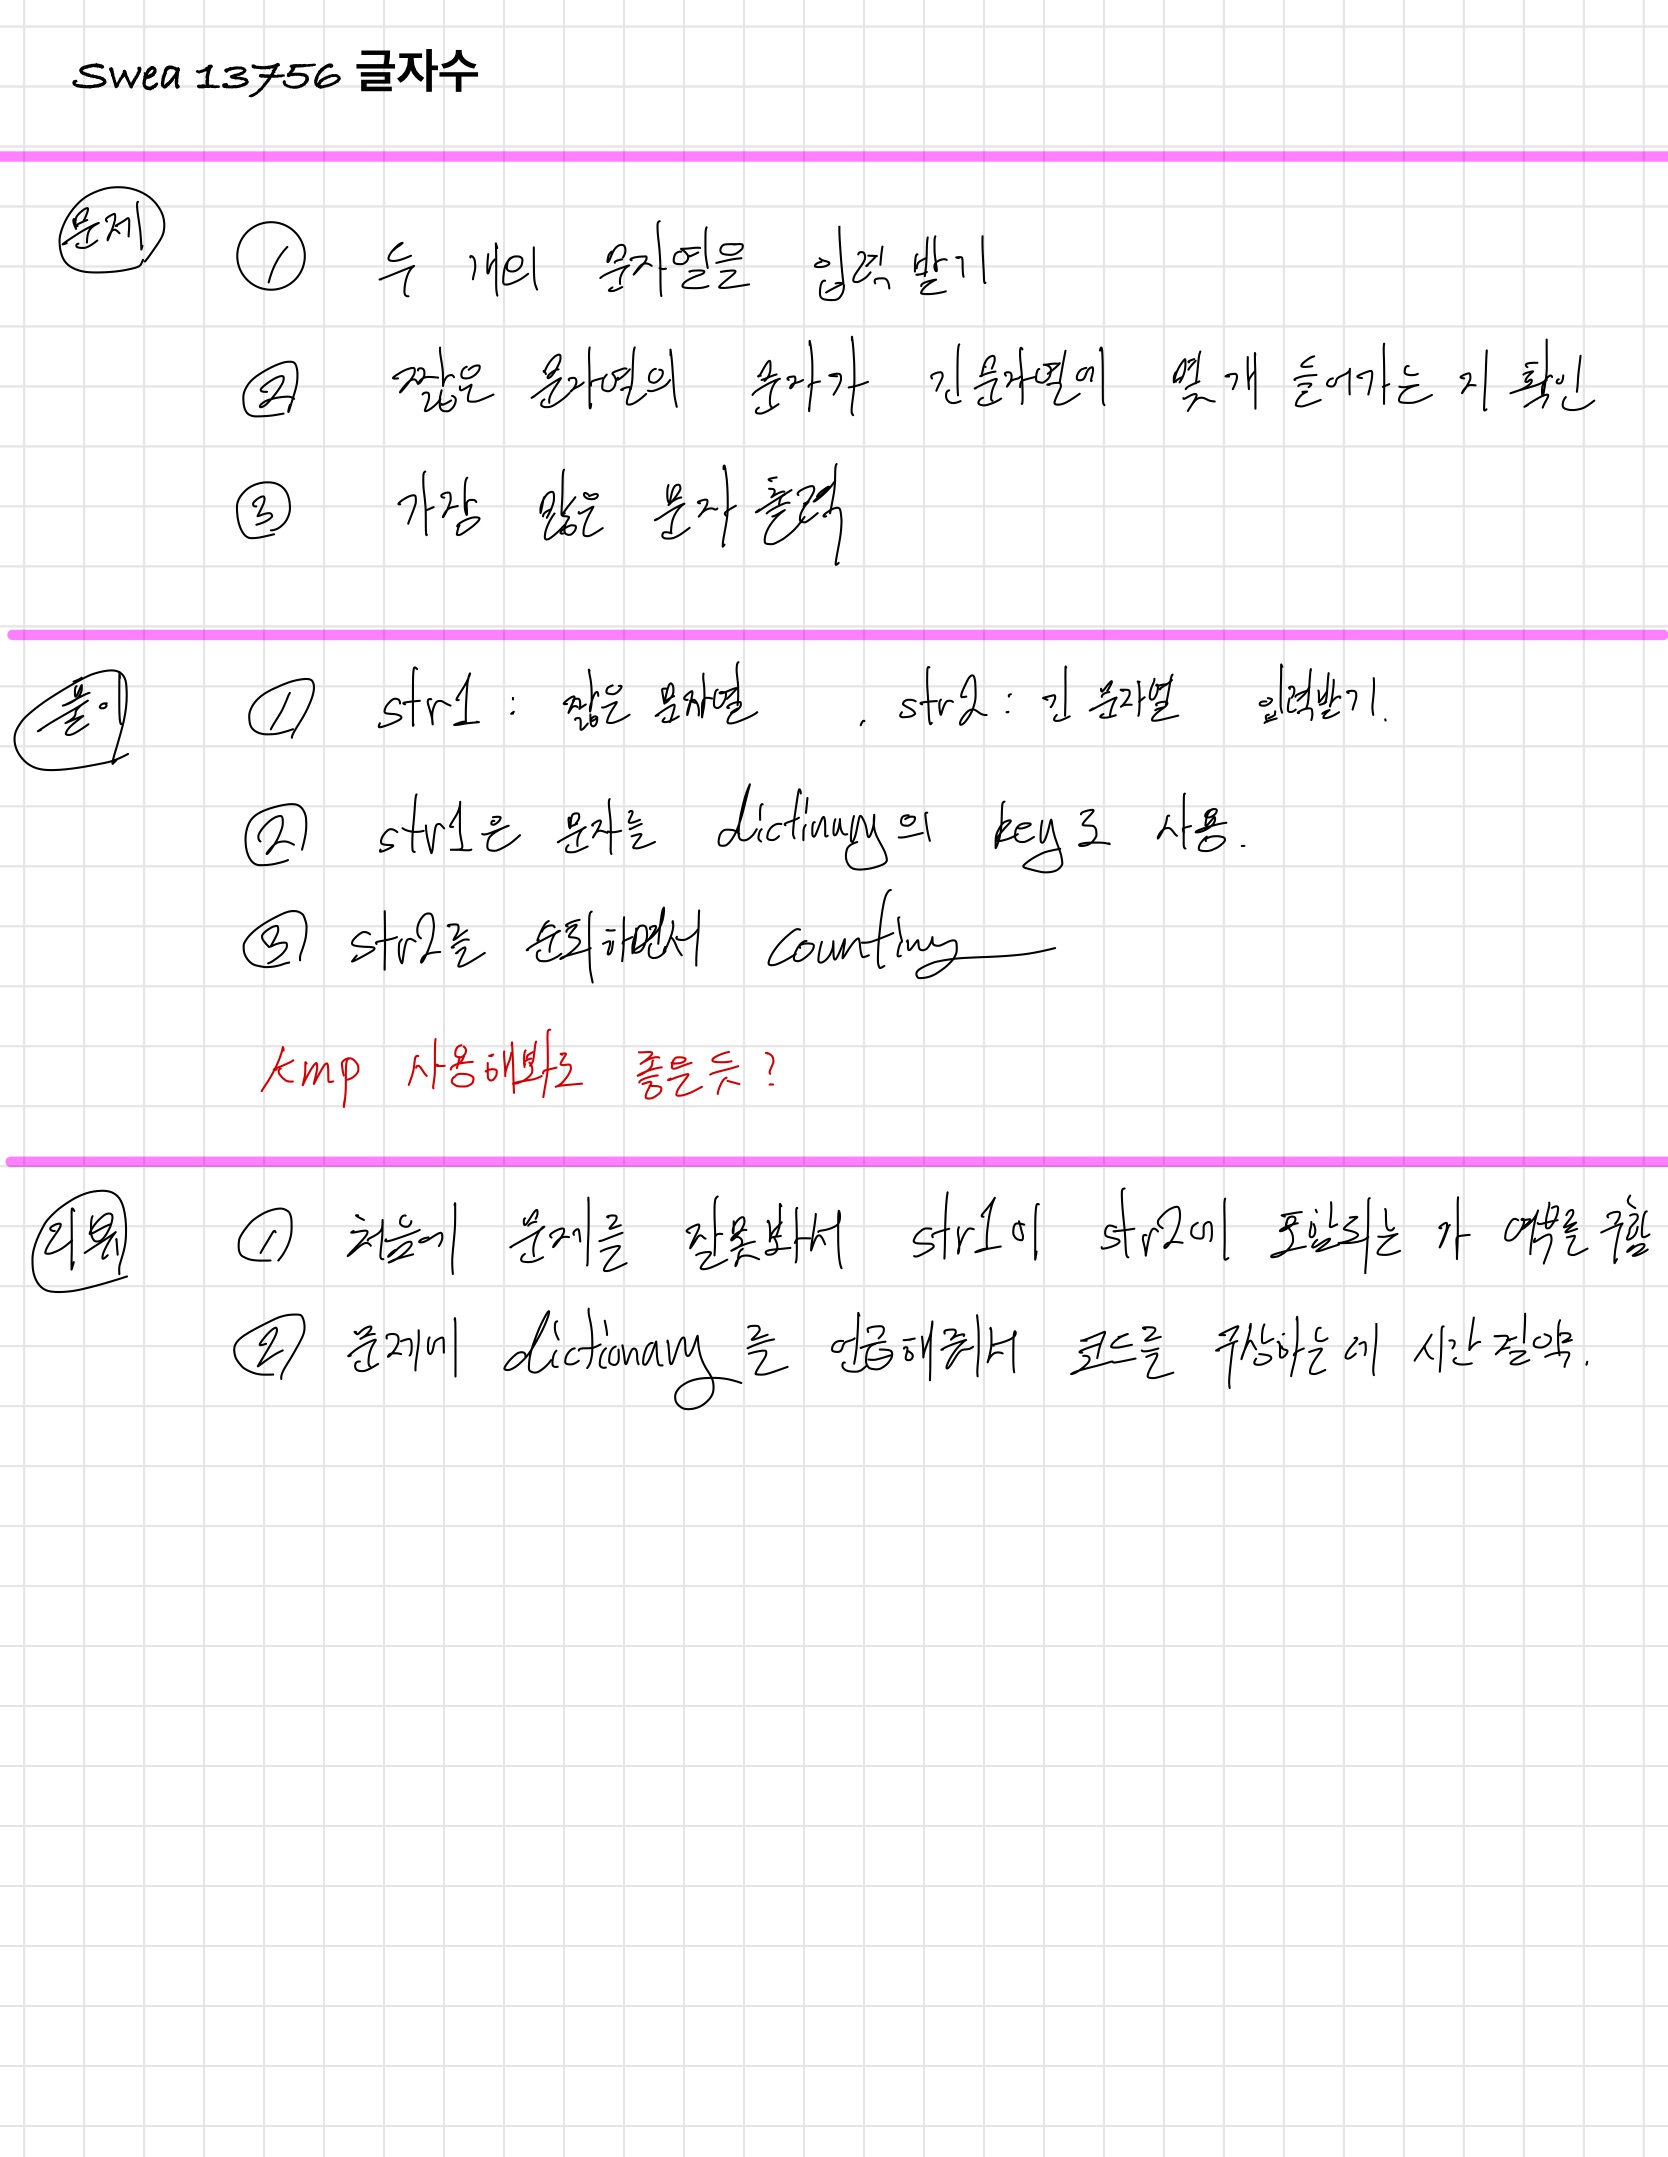 Swea 13756 글자수
문제 ① 두 개의 문자열을 입력 받기
② 짧은 문자열의 문자가 긴문자열에 몇 개 들어가는 지 확인
③ 가장 많은 문자 출력
풀이 ① str1 : 짧은 문자열 , str2 : 긴 문자열 입력받기.
② str1은 문자를 dictinary의 key로 사용.
③ str2를 순회하면서 counting
kmp 사용해봐도 좋은듯?
리뷰 ① 처음에 문제를 잘못봐서 str1이 str2에 포함되는 가 여부를 구함
② 문제에 dictionary를 언급해줘서 코드를 구상하는데 시간 절약.